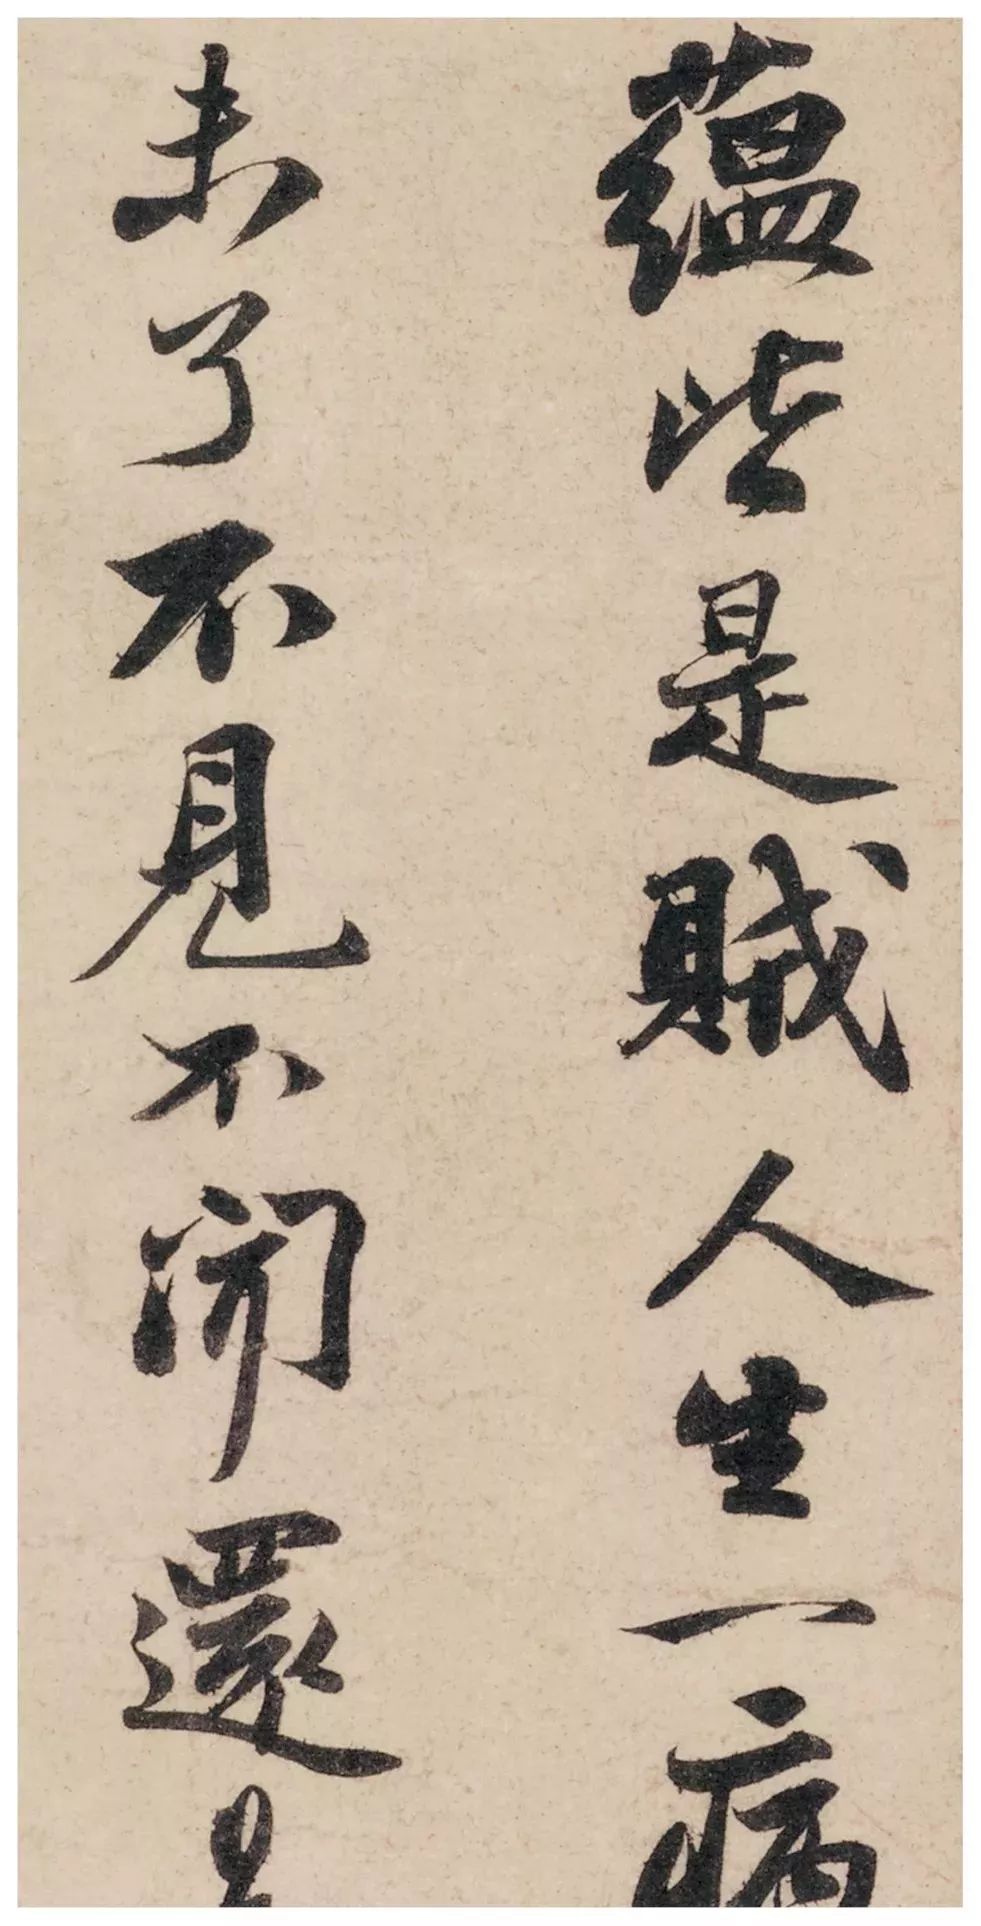 蘊是賊人生一病
未了不見不聞還